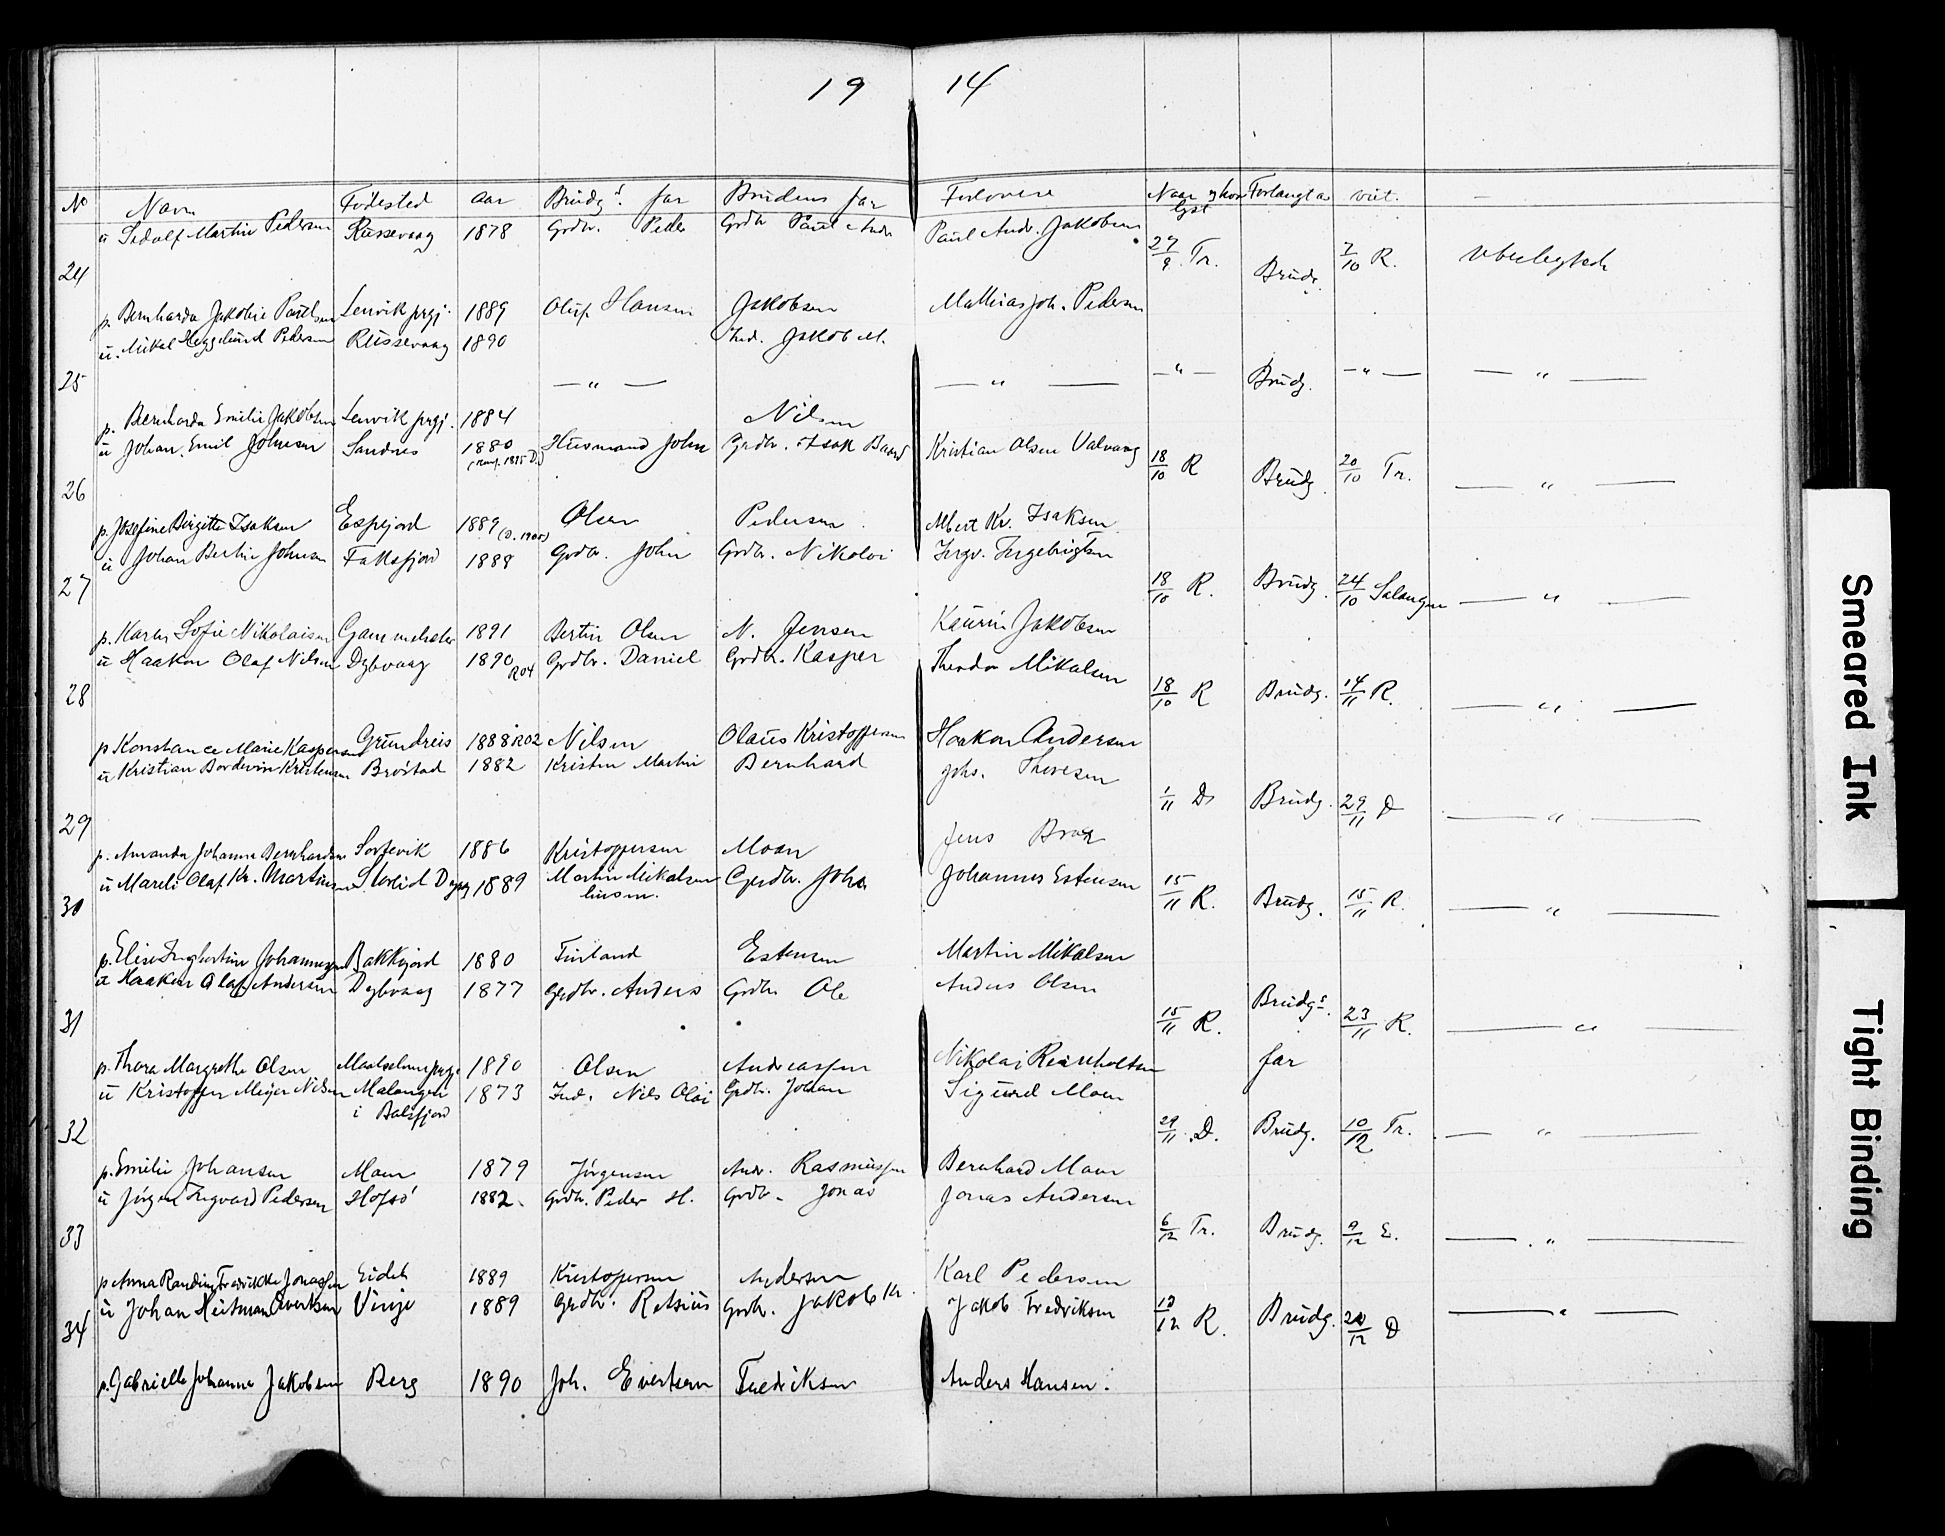 19 14
No Navn Fødested aar Brudgs. far Brudens far Forlovere Naar og hvor lyst Forlangt av viet. -
u Sedolf Martin Pedersen Russevaag 1878 Grdbr. Peder Grdbr Paul Andr Paul Andr. Jakobsen
24 27/9 Tr. Brudg. 7/10 R.
p. Bernharda Jakobie Paulsen Lenvik prgj. 1889 Oluf Hansen Jakobsen Mathias Joh. Pedersen
u. Mikal Heggelund Pedersen Russevaag 1890 Ind. Jakob M.
25 — " — — " — — " — Brudg. — " — — " —
p. Bernharda Emilie Jakobsen Lenvik prgj. 1884 Nilsen
u Johan Emil Johnsen Sandnes 1880 Husmand John Grdbr. Isak Baard Kristian Olsen Valvaag
26 18/10 R Brudg. 20/10 Tr. — " —
p. Josefine Birgitte Isaksen Espejord 1889 (D. 1905) Olsen Pedersen Albert Kr. Isaksen
u Johan Bertin Johnsen Faksfjord 1888 Grdbr. John Grdbr. Nikolai Ingv. Ingebrigtsen
27 18/10 R. Brudg. 24/10 Salangen — " —
p. Karen Sofie Nikolaisen 1891 Bertin Olsen N. Jensen Kaurin Jakobsen
u Haakon Olaf Nilsen Dybvaag 1890 R04 Grdbr. Daniel Grdbr. Kasper Theodor Mikalsen
28 18/10 R Brudg. 14/11 R. — " —
p Konstance Marie Kaspersen Grundreis 1888 R02 Nilsen Olaus Kristoffersen Haakon Andersen
u Kristian Bordevin Kristensen Brøstad 1882 Kristen Martin Bernhard Johs. Thoresen
29 1/11 D Brudg. 29/11 D — " —
p. Amanda Johanna Bernhardsen Sørfevik 1886 Kristoffersen Moan Jens
u Mareli Olaf Kr. Martinsen 1889 Martin Mikalsen Grdbr. Johs Johannes Estensen
30 15/11 R. Brudg. 15/11 R. — " —
p. Elise Ingbertine Johannessen Bakkejord 1880 Finland Estensen Martin Mikalsen
u Haakon Olaf Andersen Dybvaag 1877 Grdbr. Anders Grdbr Ole Anders Olsen
31 15/11 R. Brudgs. far 23/11 R. — " —
p. Thora Margrethe Olsen Maalselvens prgj 1890 Olsen Andreassen Nikolai Reinholtsen
u Kristoffer Meyer Nilsen Malangen i Balsfjord 1873 Ind. Nils Olai Grdbr. Johan Sigurd Moen
32 29/11 D. Brudg. 10/12 Tr. — " —
p. Emilie Johansen Moen 1879 Jörgensen Andr. Rasmussen Bernhard Moen
u Jörgen Ingvard Pedersen Hofsö 1882 Grdbr. Peder H. Grdbr. Jonas Jonas Andersen
33 6/12 Tr. Brudg. 9/12 E. — " —
p Anna Randine Fredrikke Jonassen Eidet 1889 Kristoffersen Andersen Karl Pedersen
u Johan Heitman Evertsen Vinje 1889 Grdbr. Retsius Grdbr. Jakob Kr. Jakob Fredriksen
34 13/12 R. Brudg. 20/12 D — " —
p. Gabrielle Johanna Jakobsen Berg 1890 Joh. Evertsen Fredriksen Anders Hansen.
Smeared Ink
Tight Binding